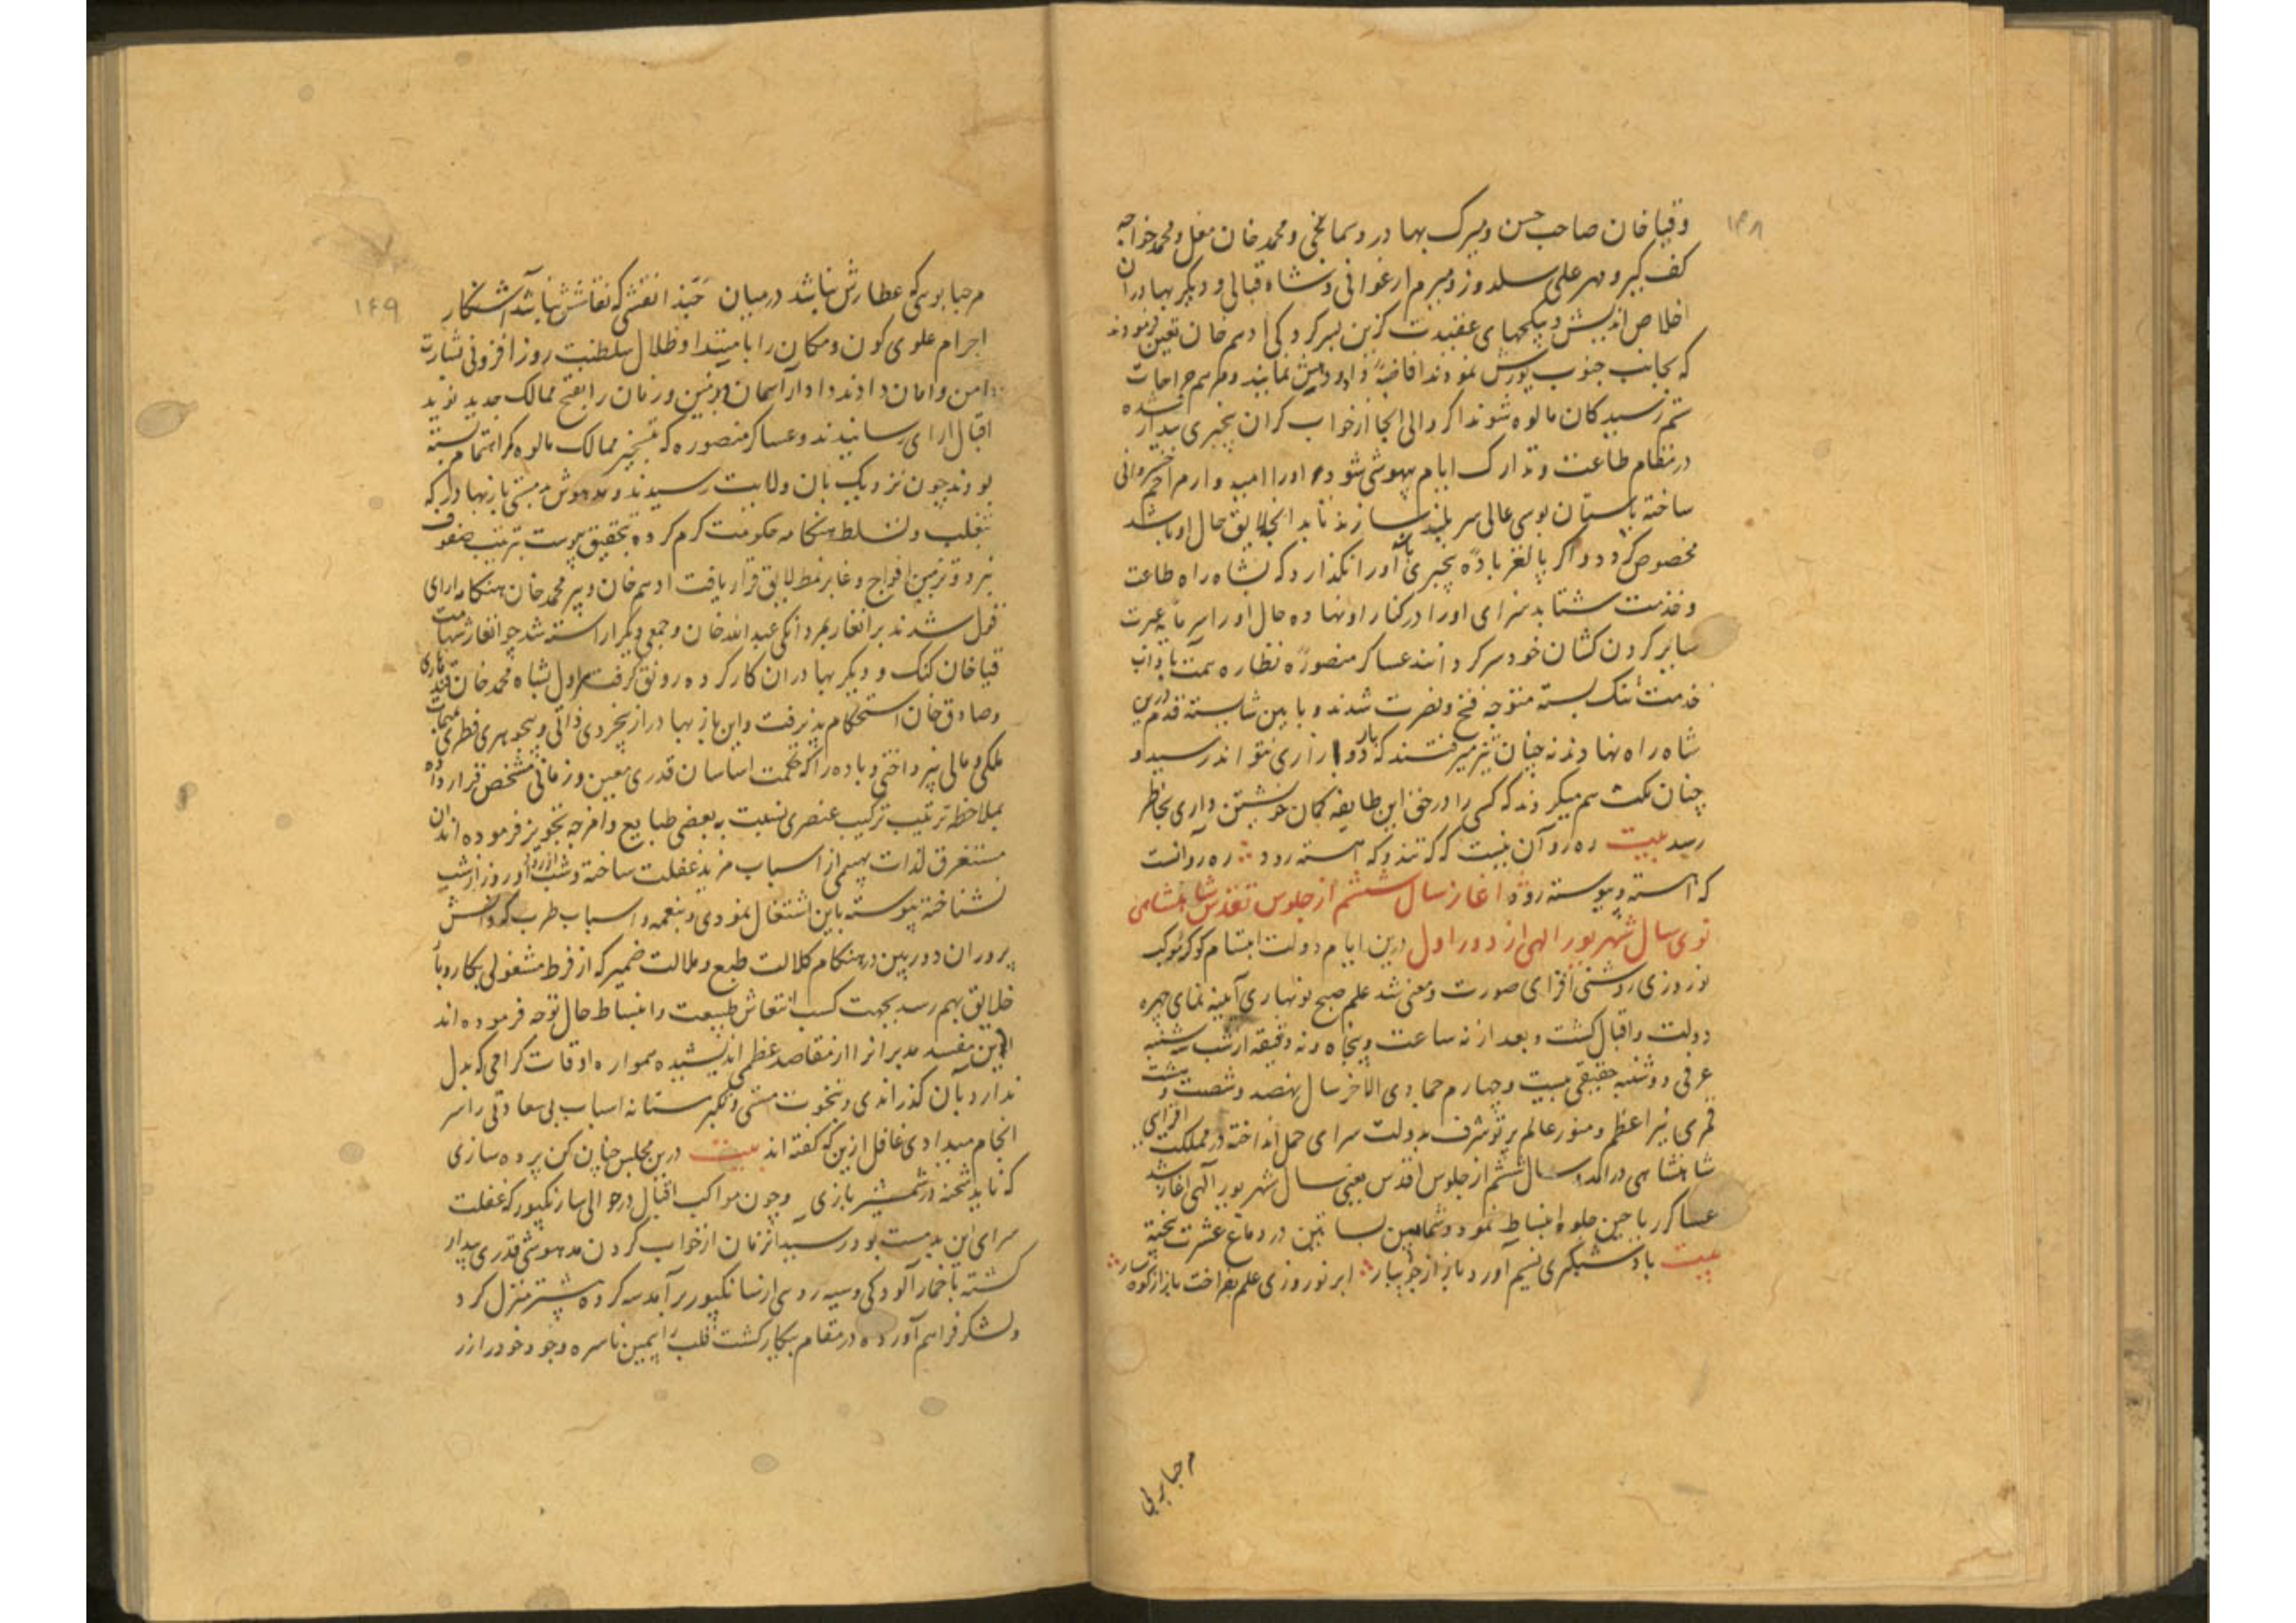 ۱۴۸
وقیا خان صاحب حسن و میرک بهادر و سمانجی و محمد خان مغل و محمد خواجه
کف گیر و مهر علی سلدوز و میرم ارغوانی و شاه قبالی و دیگر بهادران
اخلاص اندیش و یکجهای عقیدت گزین بسرکردگی ادهم خان تعین فرمودند
که بجانب جنوب یورش نموده افاضهٔ داد و دهش نمایند و مرهم جراحات
ستم رسیدگان مالوه شوند اگر والی انجا از خواب گران بیخبری بیدار شده
در نظام طاعت و تدارک ایام بیهوشی شود او را امیدوار مراحم خسروانی
ساخته باستان بوسی عالی سر بلند سازند تا بدانچه لایق حال او باشد
مخصوص گردد و اگر پا لغز بادهٔ بیخبری او را نگذارد که بشاه راه طاعت
و خدمت شتابد سزای او را در کنار او نهاده حال او را سرمایهٔ عبرت
سایر گردن کشان خودسر گردانند عساکر منصوره نظاره همت با داب
خدمت تنگ بسته متوجه فتح و نصرت شدند و بایین شایسته قدم درین
شاه راه نهادند نه چنان تیز میرفتند که دوا رازاری نتواند رسید و
چنان مکث هم میکردند که کسی را در حق این طایفه گمان خویشتن داری بخاطر
رسد بیت ره رو آن نیست که گه تند و گه آهسته رود ره رو آنست
که آهسته و پیوسته رود اغاز سال ششم از جلوس تقدس شاهنشاهی
نوی سال شهریور الهی از دور اول درین ایام دولت ابتسام کوکبهٔ موکب
نوروزی روشنی افزای صورت و معنی شد علم صبح نوبهاری آیینه نمای چهره
دولت و اقبال گشت و بعد از نه ساعت و پنجاه و نه دقیقه از شب سه شنبه
عرفی دوشنبه حقیقی بیست و چهارم جمادی الاخر سال نهصد و شصت و هشت
قمری نیر اعظم و منور عالم پرتو شرف بدولت سرای حمل انداخته در مملکت افزای
شاهنشاهی درآمد سال ششم از جلوس اقدس یعنی سال شهریور الهی اغاز شد
عساکر ریاحین جلوه انبساط نمود و شمایین بساتین در دماغ عشرت بیخته
بیت باد شبگیری نسیم آورد باز از جویبار ابر نوروزی علم بفراخت باز از کوهسار
مرحبا بوی
۱۴۹
مرحبا بویی که عطارش نباشد در میان حبذا نقشی که نقاشش نباشد آشکار
اجرام علوی کون و مکان را بامتداد ظلال سلطنت روز افزونی بشارت
امن و امان دادند و ادوار آسمان و زمین و زمان را بفتح ممالک جدید نوید
اقبال آرای رسانیدند و عساکر منصوره که بتسخیر ممالک مالوه کمر اهتمام بسته
بودند چون نزدیک بان ولایت رسیدند و مدهوش مستی باز بهادر که
بتغلب و تسلط هنگامه حکومت گرم کرده بتحقیق پیوست ترتیب صفوف
نبرد و تزیین افواج وغا بر نمط لایق قرار یافت ادهم خان و پیر محمد خان هنگامه آرای
قول شدند برانغار بمردانگی عبدالله خان و جمعی دیگر آراسته شد جوانغار بشهامت
قیا خان کنگ و دیگر بهادران کار کرده رونق گرفت هراول بشاه محمد خان قندهاری
و صادق خان استحکام پذیرفت و این باز بهادر از بیخردی ذاتی و بیجوهری فطری بمهمات
ملکی و مالی نپرداختی و باده را که حکمت اساسان قدری معین و زمانی مشخص قرار داده
بملاحظه ترتیب ترکیب عنصری نسبت به بعضی طبایع و امزجه تجویز فرموده اند آن
مستغرق لذات بهیمی از اسباب مزید غفلت ساخته و شب از روز و روز از شب
نشناخته پیوسته باین اشتغال نمودی و بنغمه و اسباب طرب که دانش
پروران دوربین در هنگام کلالت طبع و ملالت ضمیر که از فرط مشغولی بکار و بار
خلایق بهم رسد بجهت کسب انتعاش طبیعت و انبساط حال توجه فرموده اند
این مفسد مدبر انرا از مقاصد عظمی اندیشیده همواره اوقات گرامی که بدل
ندارد بآن گذراندی و بنخوت منشی و تکبر مستانه اسباب بی سعادتی را سر
انجام میدادی غافل ازین که گفته اند بیت درین مجلس چنان کن پرده سازی
که ناید شحنه در شمشیر بازی و چون مواکب اقبال در حوالی سارنگپور که غفلت
سرای این بدمست بود رسید آنزمان از خواب کردن مدهوشی قدری بیدار
گشته با خمار آلودگی و سیه روی از سارنگپور برآمد سه کروه پیشتر منزل کرد
و لشکر فراهم آورده در مقام پیکار گشت قلب را بیمین ناسره وجود خود را از